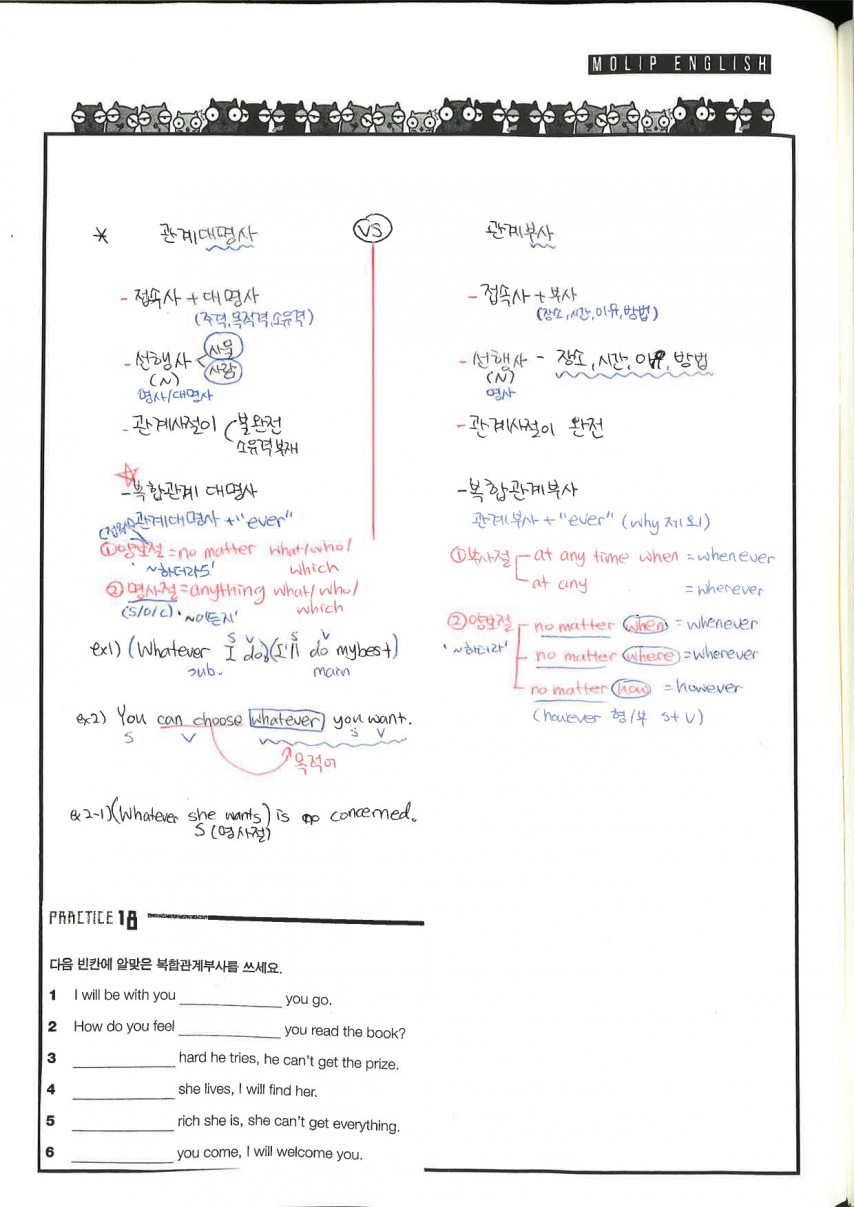 MOLIP ENGLISH
* 관계대명사
VS
관계부사
- 접속사 + 대명사
(주격, 목적격, 소유격)
- 선행사 < 사물
사람
(N)
명사/대명사
- 관계사절이 ( 불완전
소유격 부재
- 복합관계 대명사
관계대명사 + "ever"
① 양보절 = no matter what/who/
which
'~하더라도'
② 명사절 = anything what/who/
which
(S/O/C) '~이든지'
ex1) (Whatever I do,)(I'll do my best)
S V S V
sub. main
ex2) You can choose whatever you want.
S V S V
목적어
ex2-1) (Whatever she wants) is no concerned.
S (명사절)
- 접속사 + 부사
(장소, 시간, 이유, 방법)
- 선행사 - 장소, 시간, 이유, 방법
(N)
명사
- 관계사절이 완전
- 복합관계부사
관계부사 + "ever" (why 제외)
① 복사절 at any time when = whenever
at any = wherever
② 양보절 no matter when = whenever
'~하더라' no matter where = wherever
no matter how = however
(however 형/부 S+V)
PRACTICE 18
다음 빈칸에 알맞은 복합관계부사를 쓰세요.
1 I will be with you ____________ you go.
2 How do you feel ____________ you read the book?
3 ____________ hard he tries, he can't get the prize.
4 ____________ she lives, I will find her.
5 ____________ rich she is, she can't get everything.
6 ____________ you come, I will welcome you.